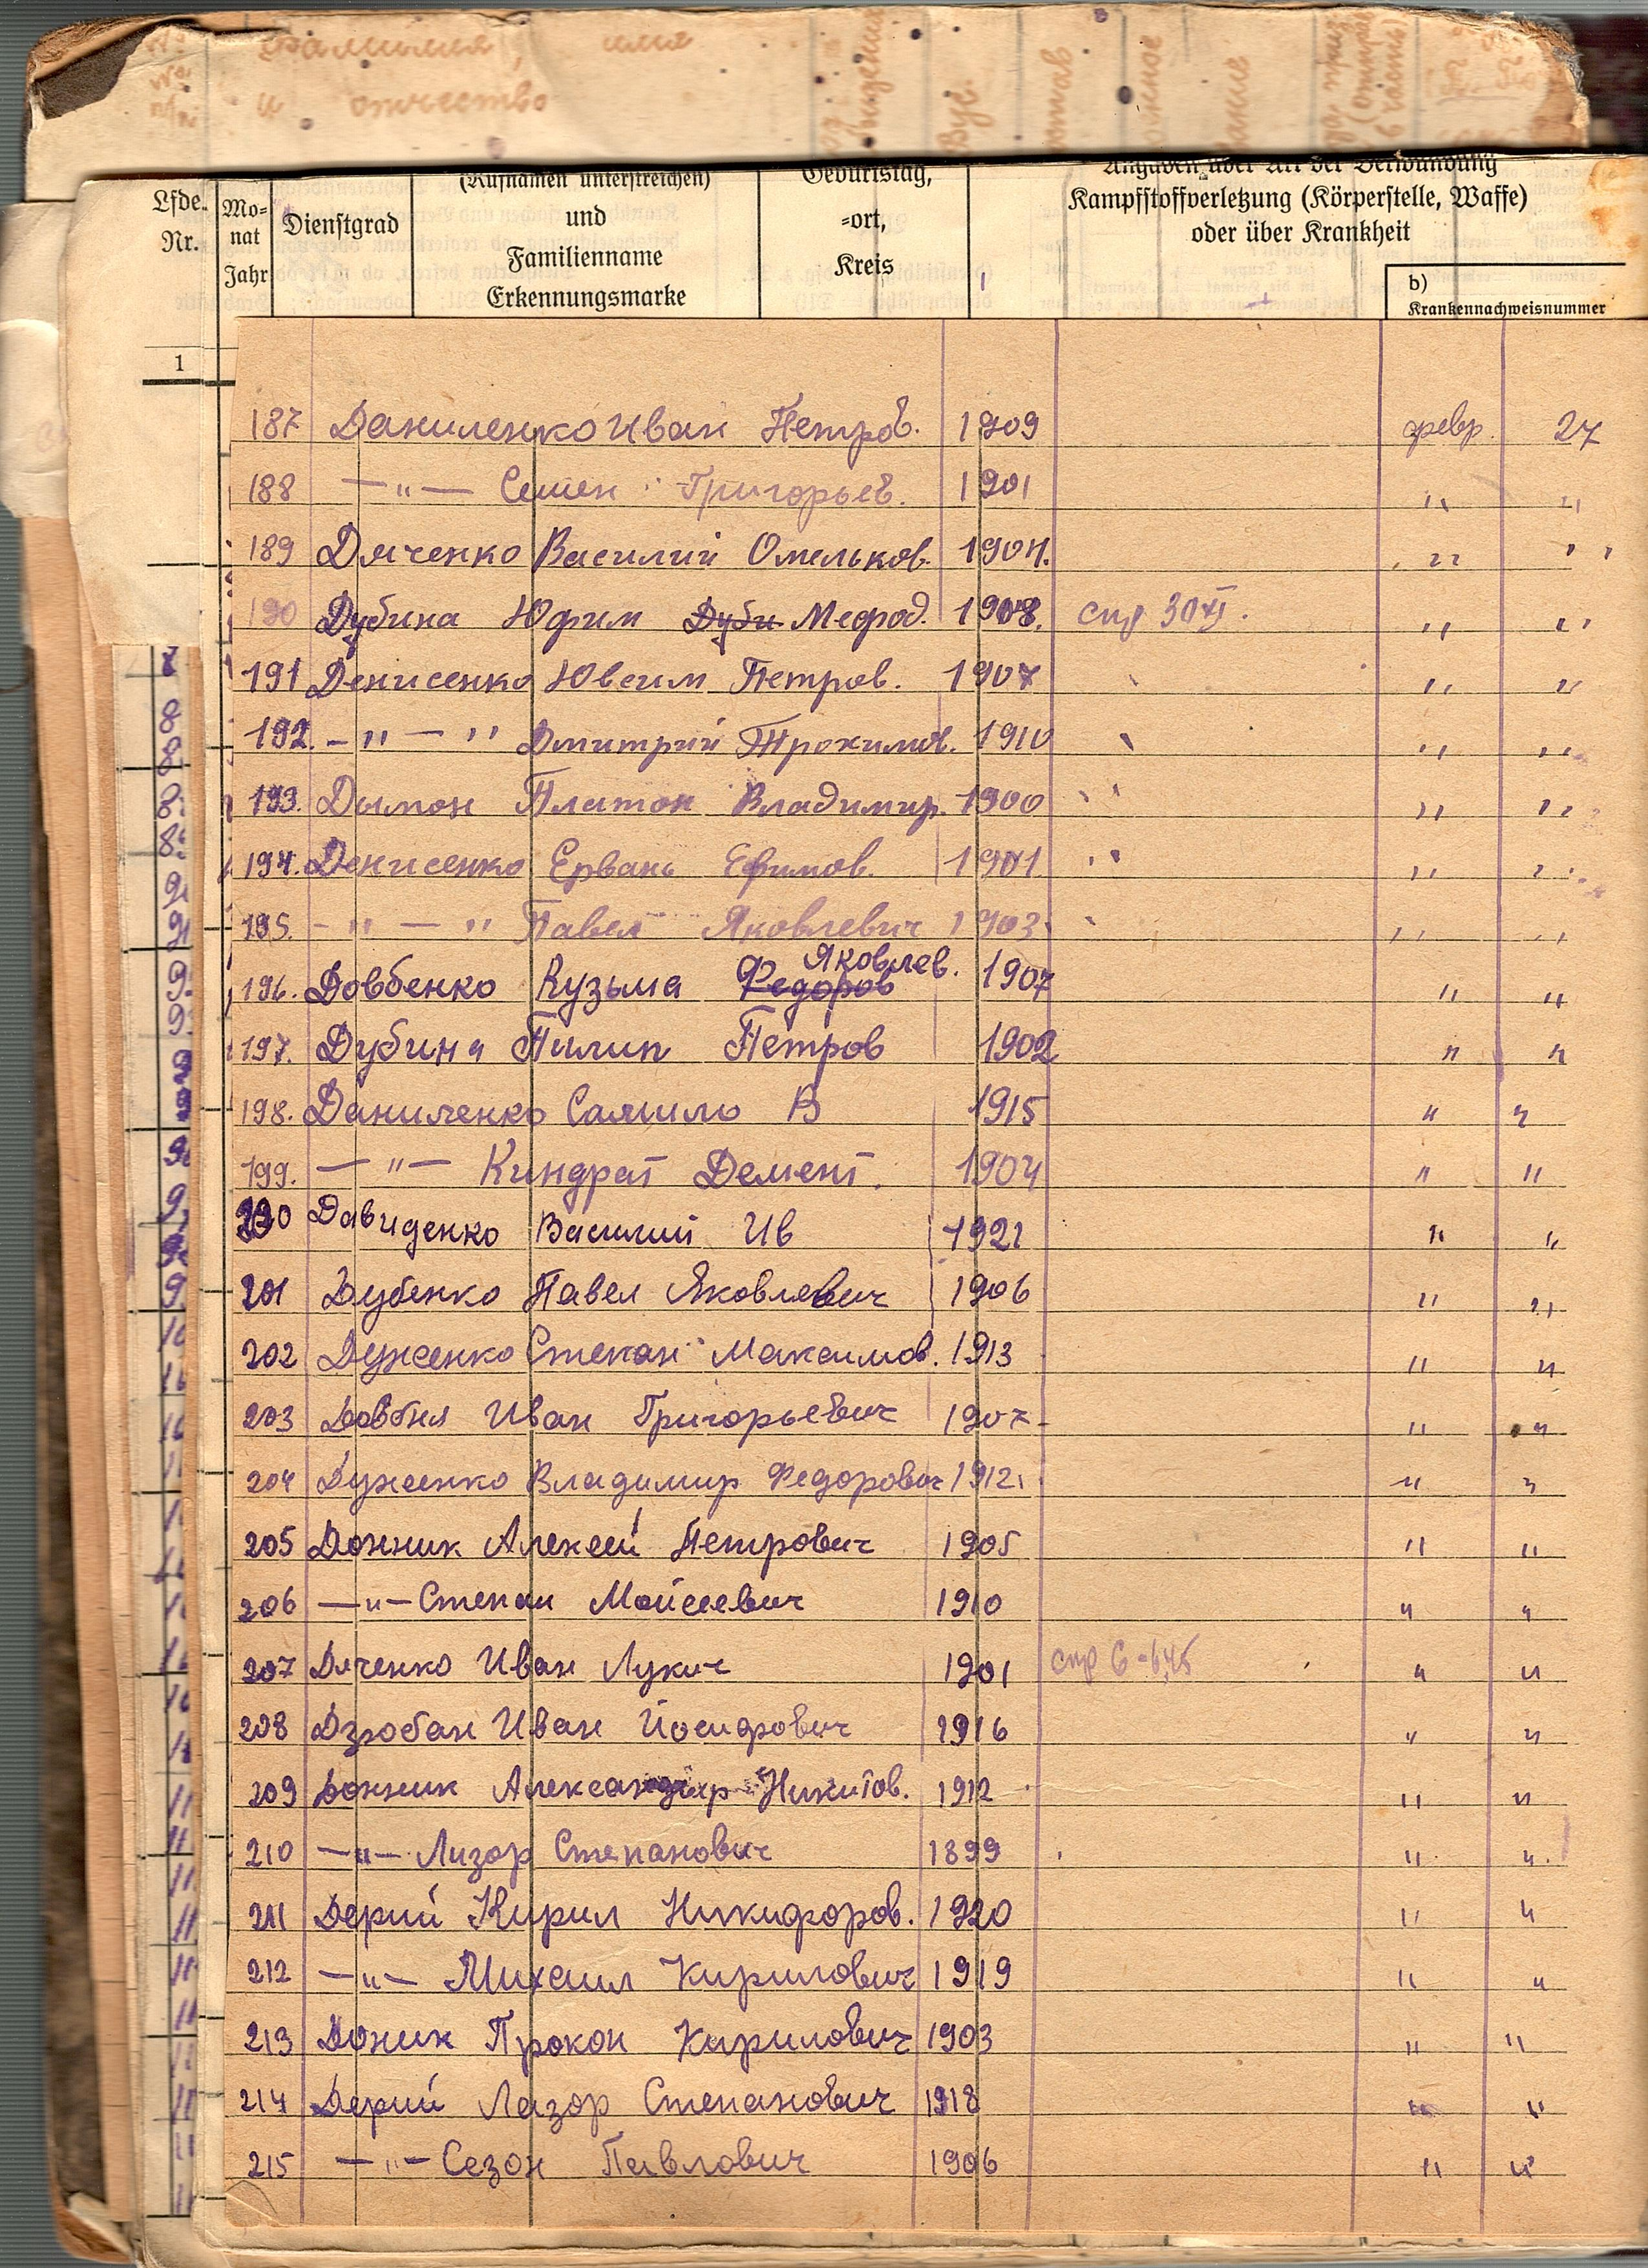 фамилия, имя
и отчество
Lfde. Nr.
Monat Jahr
Dienstgrad
(Rufnamen unterstreichen)
und
Familienname
Erkennungsmarke
Geburtstag,
=ort,
Kreis
Angaben über Art der Verwundung
Kampfstoffverletzung (Körperstelle, Waffe)
oder über Krankheit
b)
Krankennachweisnummer
1
187 Даниленко Иван Петров. 1909 февр. 27
188 —"— Семен Григорьев. 1901 " "
189 Дяченко Василий Омельков. 1904. " "
190 Дубина Юфим Дуби Мефод. 1908. " "
191 Денисенко Ювсим Петров. 1907 " "
192. – " — " Дмитрий Трохимов. 1910 " "
193. Дымон Платон Владимир. 1900 " "
194. Денисенко Ервань Ефимов. 1901 " "
195. – " — " Павел Яковлевич 1903. " "
196. Довбенко Кузьма Федоров Яковлев. 1907 " "
197. Дубина Пилип Петров 1902 " "
198. Даниленко Самило В 1915 " "
199. —"— Киндрат Демент. 1904 " "
200 Давиденко Василий Ив 1921 " "
201 Дубенко Павел Яковлевич 1906 " "
202 Дуженко Степан Максимов. 1913 " "
203 Довбня Иван Григорьевич 1907 " "
204 Дуженко Владимир Федорович 1912 " "
205 Донник Алексей Петрович 1905 " "
206 —"— Степан Мойсеевич 1910 " "
207 Дяченко Иван Лукич 1901 " "
208 Дзюбан Иван Йосифович 1916 " "
209 Донник Александр Никитов. 1912 " "
210 —"— Лизор Степанович 1899 " "
211 Дерий Кирил Никифоров. 1920 " "
212 —"— Михаил Кирилович 1919 " "
213 Доник Прокоп Кирилович 1903 " "
214 Дерий Лазор Степанович 1918 " "
215 —"— Сезон Павлович 1906 " "